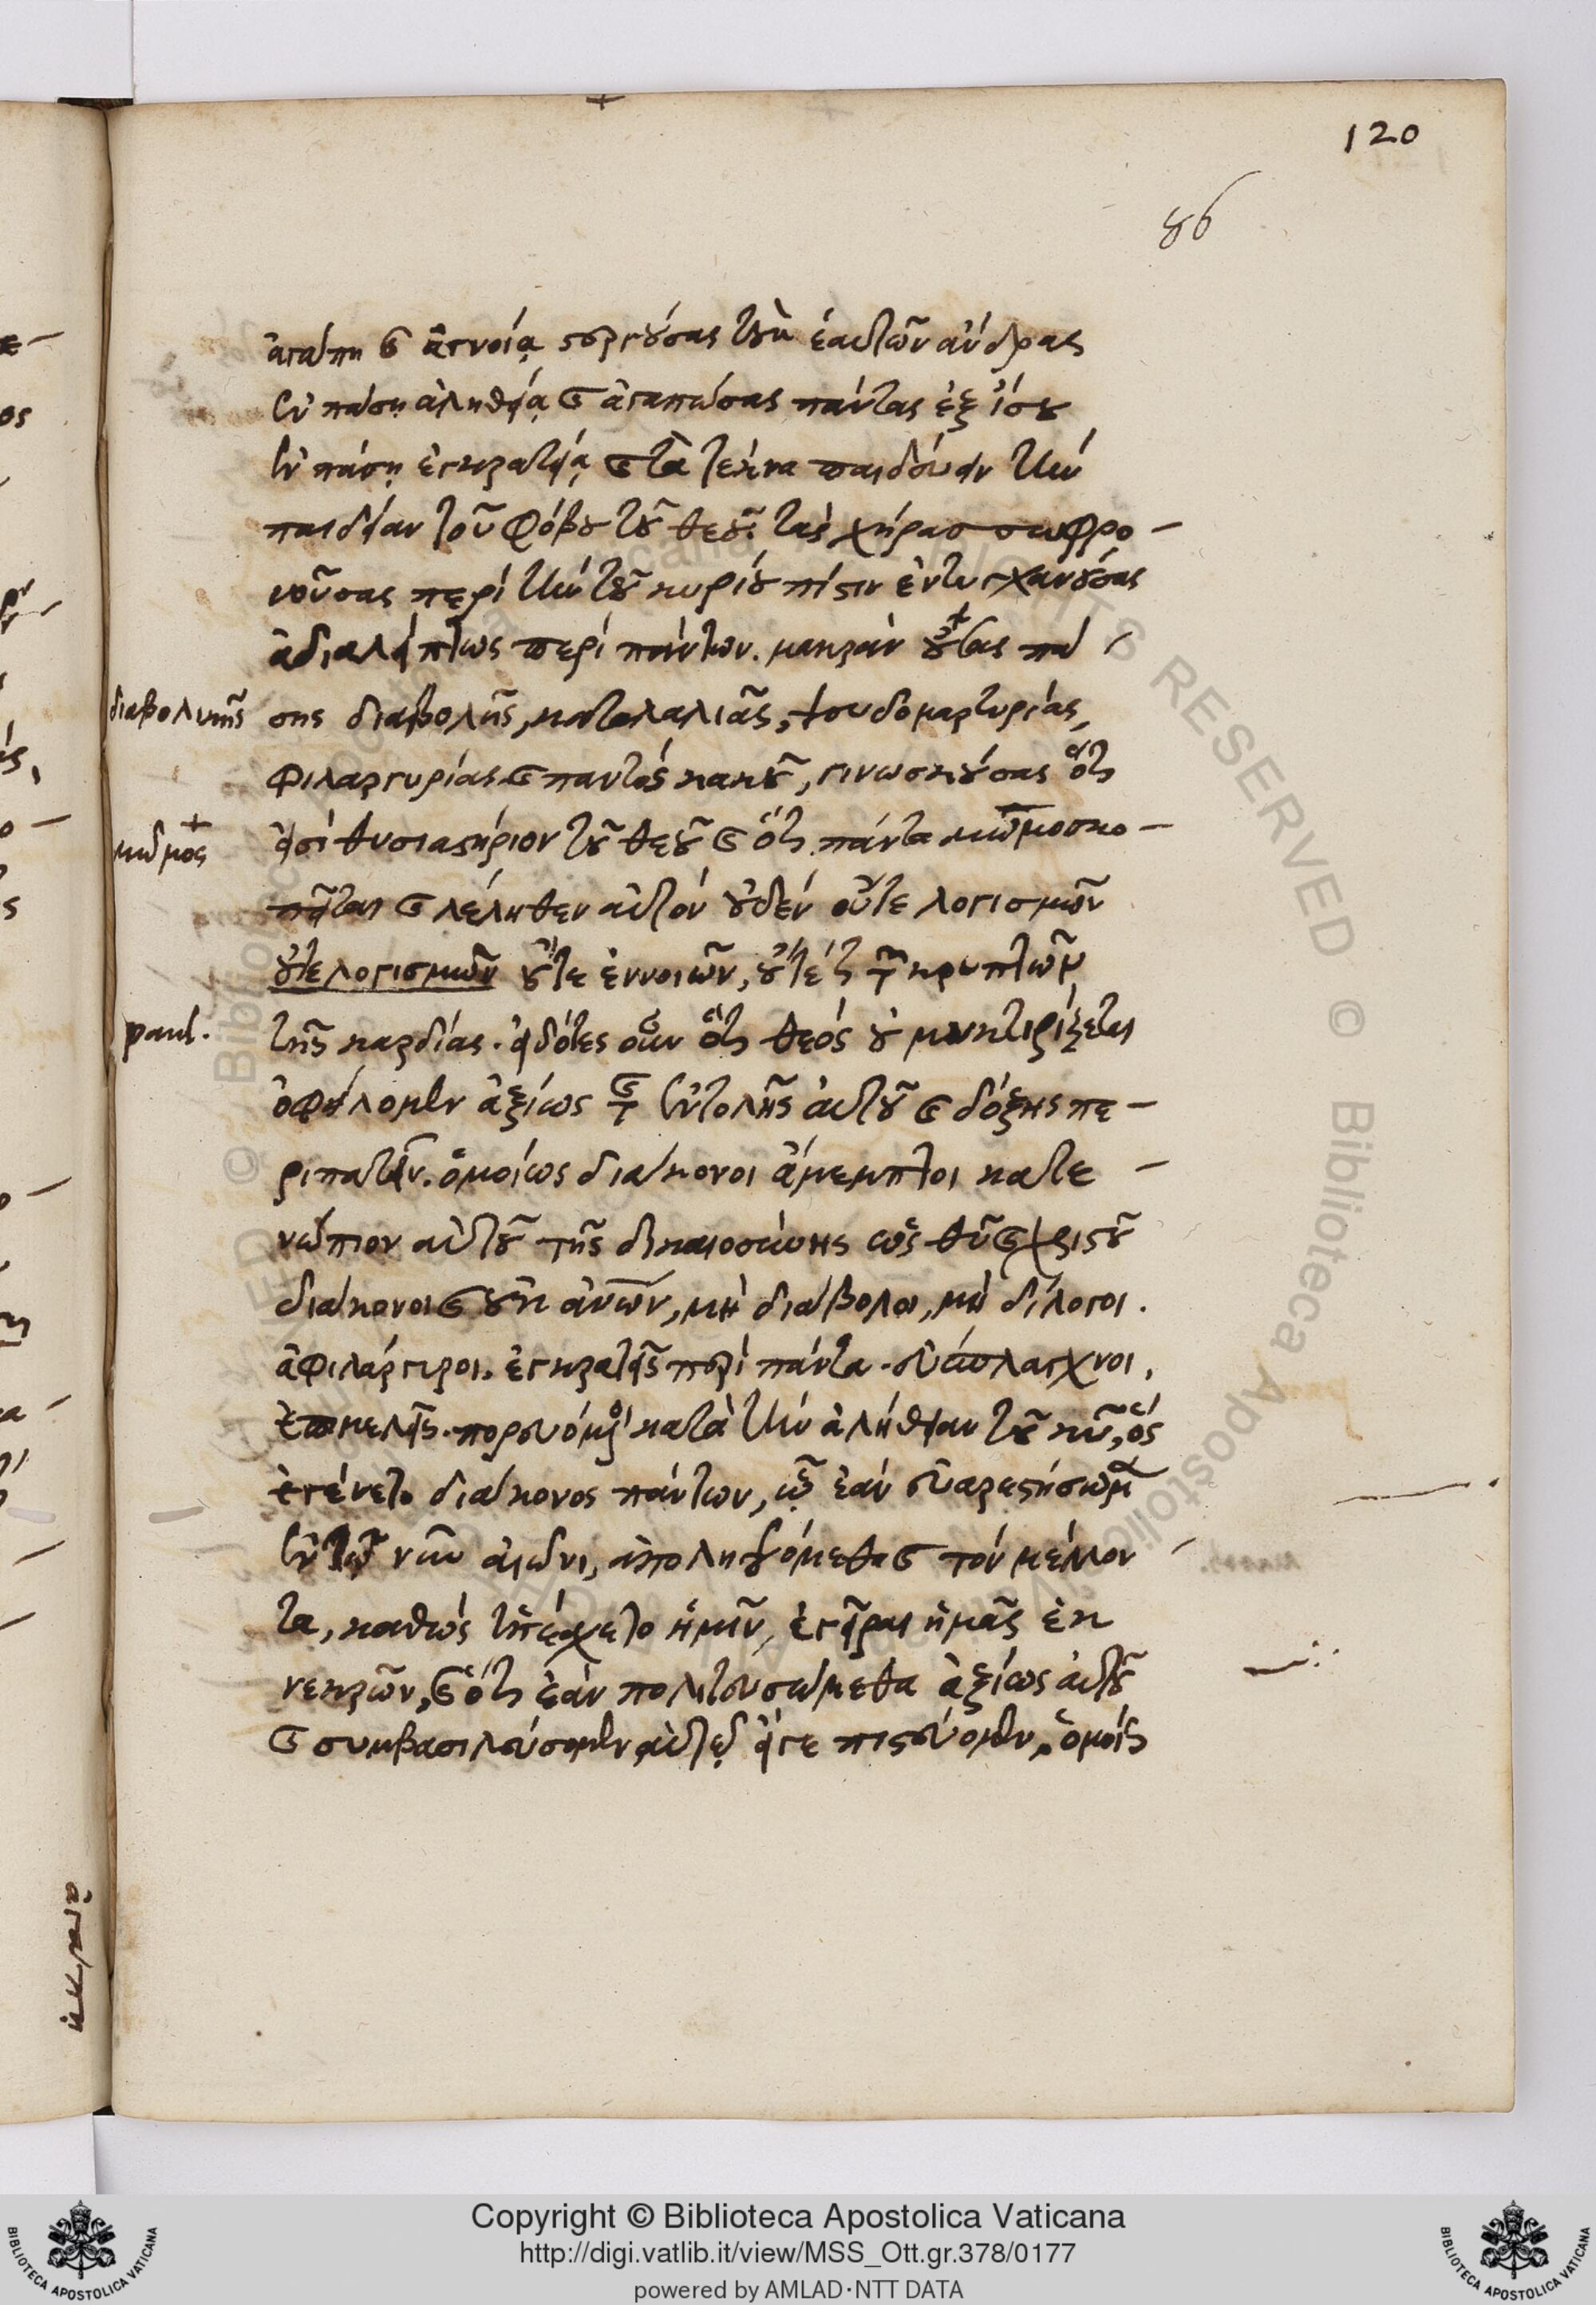 120
86
ἀγάπη καὶ ἁγνοίᾳ στεργούσας τοὺς ἑαυτῶν ἄνδρας
ἐν πάσῃ ἀληθείᾳ καὶ ἀγαπώσας πάντας ἐξ ἴσου
ἐν πάσῃ ἐγκρατείᾳ καὶ τὰ τέκνα παιδεύειν τὴν
παιδείαν τοῦ φόβου τοῦ θεοῦ. τὰς χήρας σωφρο –
νούσας περὶ τὴν τοῦ κυρίου πίστιν ἐντυγχανούσας
ἀδιαλείπτως περὶ πάντων. μακρὰν οὔσας πά
διαβολικῆς σης διαβολῆς, καταλαλιᾶς, ψευδομαρτυρίας,
φιλαργυρίας καὶ παντὸς κακοῦ, γινωσκούσας ὅτι
μῶμος εἰσὶ θυσιαστήριον τοῦ θεοῦ καὶ ὅτι πάντα μωμοσκο –
πεῖται καὶ λέληθεν αὐτὸν οὐδὲν οὔτε λογισμῶν
οὔτε λογισμῶν οὔτε ἐννοιῶν, οὔτέ τι τῶν κρυπτῶν
paul. τῆς καρδίας. εἰδότες οὖν ὅτι θεὸς οὐ μυκτιρίζεται
ὀφείλομεν ἀξίως τῆς ἐντολῆς αὐτοῦ καὶ δόξης πε –
ριπατεῖν. ὁμοίως διάκονοι ἄμεμπτοι κατε –
νώπιον αὐτοῦ τῆς δικαιοσύνης ὡς θῦ καὶ χριστοῦ
διάκονοι καὶ οὐκ ἀνων, μὴ διάβολοι, μὴ δίλογοι.
ἀφιλάργυροι. ἐγκρατεῖς περὶ πάντα. εὔσπλαγχνοι,
ἐπιμελεῖς. πορευόμενοι κατὰ τὴν ἀλήθειαν τοῦ κῦ, ὃς
ἐγένετο διάκονος πάντων, ᾧ ἐὰν εὐαρεστήσωμεν
ἐν τῷ νῦν αἰῶνι, ἀποληψόμεθα καὶ τὸν μέλλον –
τα, καθὼς ὑπέσχετο ἡμῖν, ἐγεῖραι ἡμᾶς ἐκ
νεκρῶν, καὶ ὅτι ἐὰν πολιτευσώμεθα ἀξίως αὐτοῦ
καὶ συμβασιλεύσομεν αὐτῷ εἴγε πιστεύομεν. ὁμοίως
Copyright © Biblioteca Apostolica Vaticana
http://digi.vatlib.it/view/MSS_Ott.gr.378/0177
powered by AMLAD·NTT DATA